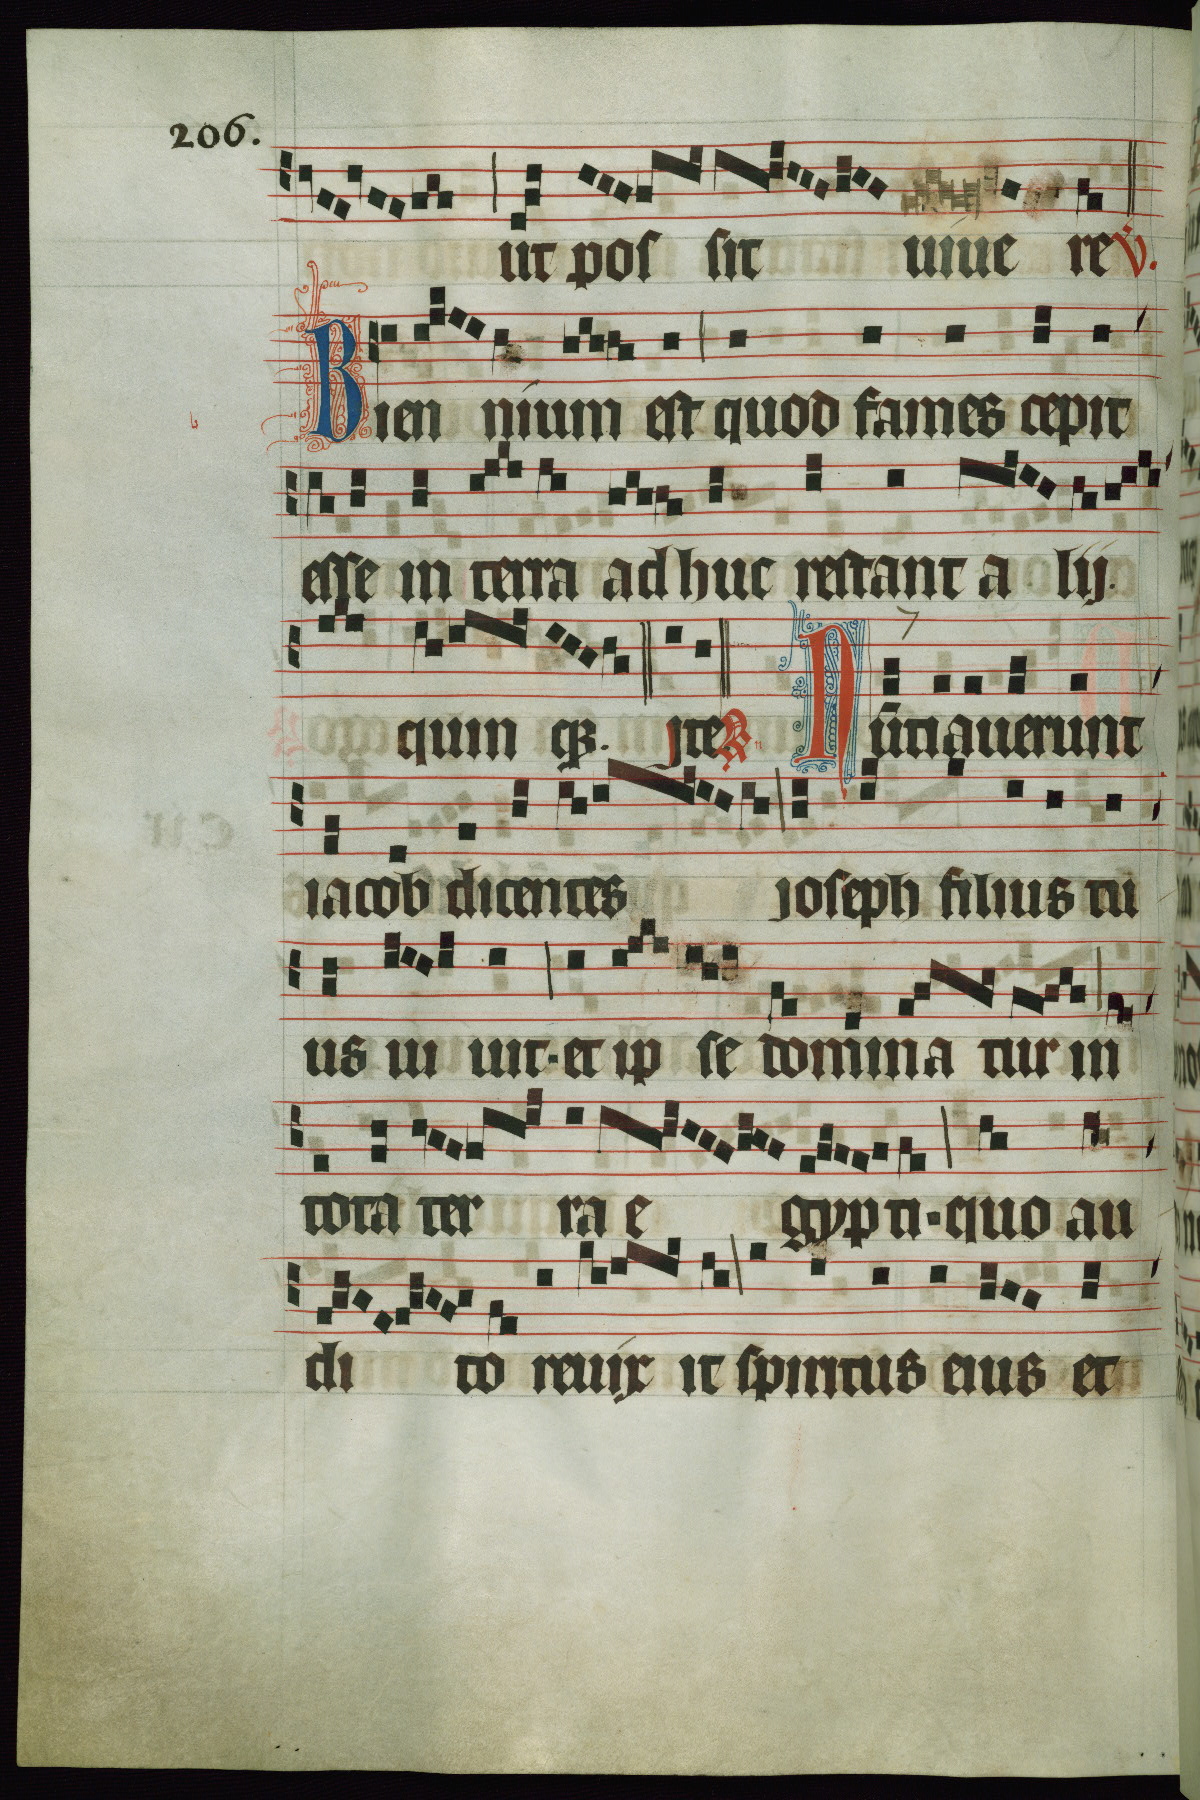 206.
ut pos sit uiue re v̇.
Bien nium est quod fames cepit
esse in terra ad huc restant a lij.
quin qꝫ. Jte ℟
Nūtiauerunt
iacob dicentes Joseph filius tu
us ui uit·et ip se domina tur in
tota ter ra e gypti·quo au
di to reuix it spiritus eius et